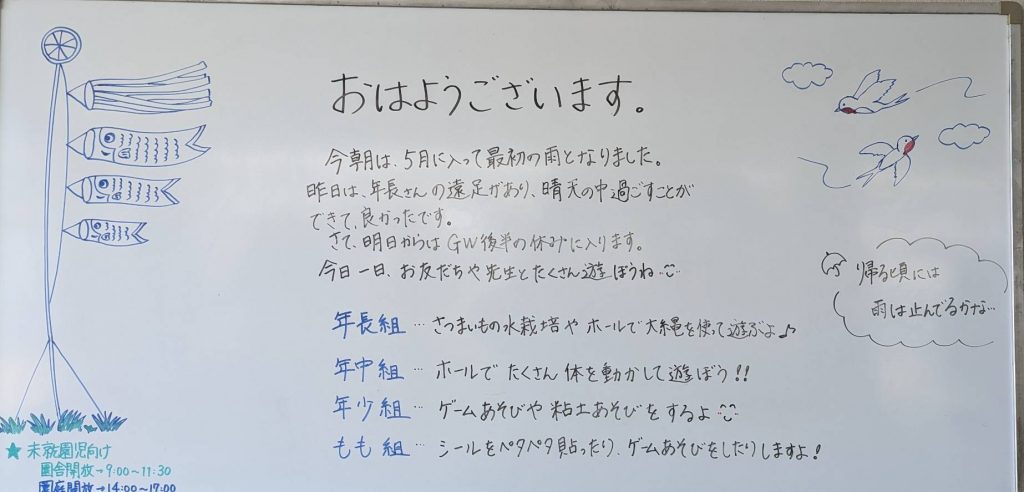 おはようございます。
今朝は、5月に入って最初の雨となりました。
昨日は、年長さんの遠足があり、晴天の中過ごすことが
できて、良かったです。
さて、明日からはGW後半の休みに入ります。
今日一日、お友だちや先生とたくさん遊ぼうね
年長組…さつまいもの水栽培やホールで大縄を使って遊ぶよ♪
年中組…ホールでたくさん体を動かして遊ぼう!!
年少組…ゲームあそびや粘土あそびをするよ
もも組…シールをペタペタ貼ったり、ゲームあそびをしたりしますよ!
帰る頃には
雨は止んでるかな…
★未就園児向け
園舎開放→9:00~11:30
園庭開放→14:00~17:00